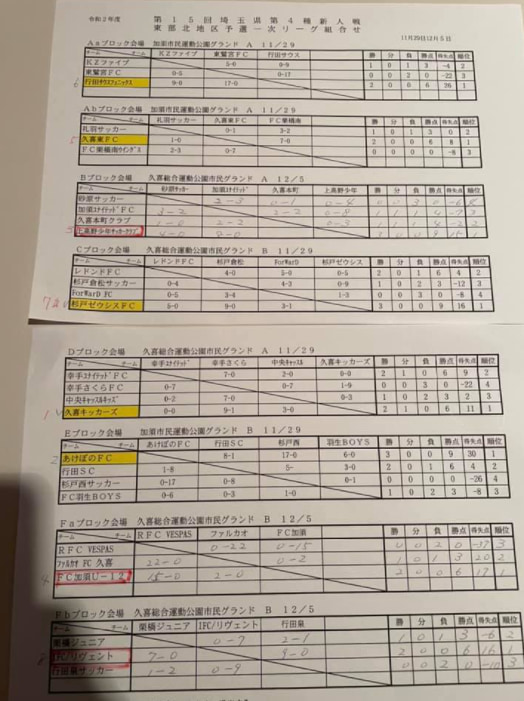 令和2年度
第15回埼玉県第4種新人戦
東部北地区予選一次リーグ組合せ
11月29日12月5日
Aaブロック会場 加須市民運動公園グランド A 11/29
チーム チーム KZファイブ 東鷲宮FC 行田サウス 勝 分 負 勝点 得失点 順位
KZファイブ 5-0 0-9 1 0 1 3 -4 2
東鷲宮FC 0-5 0-17 0 0 2 0 -22 3
6 行田サウスフェニックス 9-0 17-0 2 0 0 6 26 1
Abブロック会場 加須市民運動公園グランド A 11/29
チーム チーム 礼羽サッカー 久喜東FC FC栗橋南 勝 分 負 勝点 得失点 順位
礼羽サッカー 0-1 3-2 1 0 1 3 0 2
5 久喜東FC 1-0 7-0 2 0 0 6 8 1
FC栗橋南ウイングス 2-3 0-7 0 0 0 0 -8 3
Bブロック会場 久喜総合運動公園市民グランド A 12/5
チーム チーム 砂原サッカー 加須ユナイテッド 久喜本町 上高野少年 勝 分 負 勝点 得失点 順位
砂原サッカー 2-3 0-1 0-4 0 0 3 0 -6 4
加須ユナイテッドFC 3-2 2-2 0-8 1 1 1 4 -7
久喜本町クラブ 1-0 2-2 0-3 1 1 1 4 -2 2
上高野少年サッカークラブ 4-0 3 0 0 9 15 1
Cブロック会場 久喜総合運動公園市民グランド B 11/29
チーム チーム レドンドFC 杉戸倉松 ForWarD 杉戸ゼウシス 勝 分 負 勝点 得失点 順位
レドンドFC 4-0 5-0 0-5 2 0 1 6 4 2
杉戸倉松サッカー 0-4 4-3 0-9 1 0 2 3 -12 3
ForWarD FC 0-5 3-4 1-3 0 0 3 0 -8 4
7 杉戸ゼウシスFC 5-0 9-0 3-1 3 0 0 9 16 1
Dブロック会場 久喜総合運動公園市民グランド A 11/29
チーム チーム 幸手ユナイテッド 幸手さくら 中央キャッスル 久喜キッカーズ 勝 分 負 勝点 得失点 順位
幸手ユナイテッドFC 7-0 2-0 0-0 2 1 0 6 9 2
幸手さくらFC 0-7 0-7 1-9 0 0 3 0 -22 4
中央キャッスルキッズ 0-2 7-0 0-3 1 0 2 3 2 3
1 久喜キッカーズ 0-0 9-1 3-0 2 1 0 6 11 1
Eブロック会場 加須市民運動公園グランド B 11/29
チーム チーム あけぼのFC 行田SC 杉戸西 羽生BOYS 勝 分 負 勝点 得失点 順位
2 あけぼのFC 8-1 17-0 6-0 3 0 0 9 30 1
行田SC 1-8 5- 3-0 2 0 1 6 4 2
杉戸西サッカー 0-17 0-8 0-1 0 0 0 0 -26 4
FC羽生BOYS 0-6 0-3 1-0 1 0 2 3 -8 3
Faブロック会場 久喜総合運動公園市民グランド B 12/5
チーム チーム RFC VESPAS ファルカオ FC加須 勝 分 負 勝点 得失点 順位
RFC VESPAS 0-22 0-15 0 0 2 0 -37 3
ファルカオ FC 久喜 22-0 0-2 1 0 1 3 20 2
4 FC加須U-12 15-0 2-0 2 0 0 6 17 1
Fbブロック会場 久喜総合運動公園市民グランド B 12/5
チーム チーム 栗橋ジュニア IFC/リヴェント 行田泉 勝 分 負 勝点 得失点 順位
栗橋ジュニア 0-7 2-1 1 0 1 3 -6 2
IFC/リヴェント 7-0 9-0 2 0 0 6 16 1
行田泉サッカー 1-2 0-9 0 0 2 0 -10 3